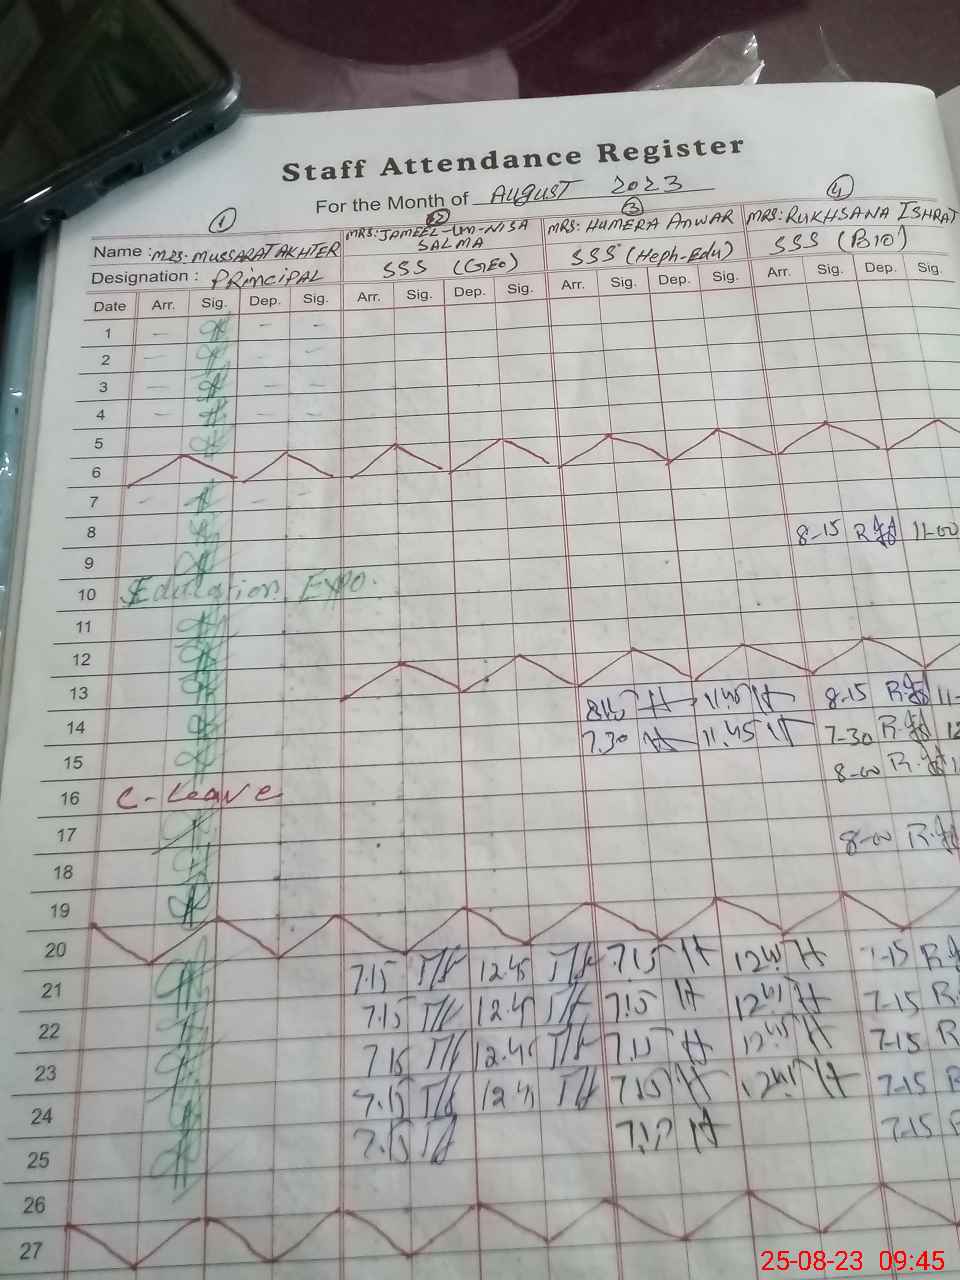 Staff Attendance Register
For the Month of August 2023
1 2 3 4
Name : MRS: MUSSARAT AKHTER MRS: JAMEEL-UN-NISA SALMA MRS: HUMERA ANWAR MRS: RUKHSANA ISHRAT
Designation : PRINCIPAL SSS (GEO) SSS (Heph-Edu) SSS (BIO)
Date Arr. Sig. Dep. Sig. Arr. Sig. Dep. Sig. Arr. Sig. Dep. Sig. Arr. Sig. Dep. Sig.
1 - - -
2 - -
3 - - -
4 - - -
5
6
7 - - -
8 8-15 11-00
9
10 Education Expo.
11
12
13
14 8-15 11-
15 7.30 11.45 7-30 12
16 C-Leave 8-00
17
18 8-00
19
20
21 7.15 12.45 7.15 7-15
22 7.15 12.45 7.15 7-15
23 7.15 12.45 7.15 12.45 7-15
24 7.15 7.15 7-15
25 7.15 7-15
26
27
25-08-23 09:45